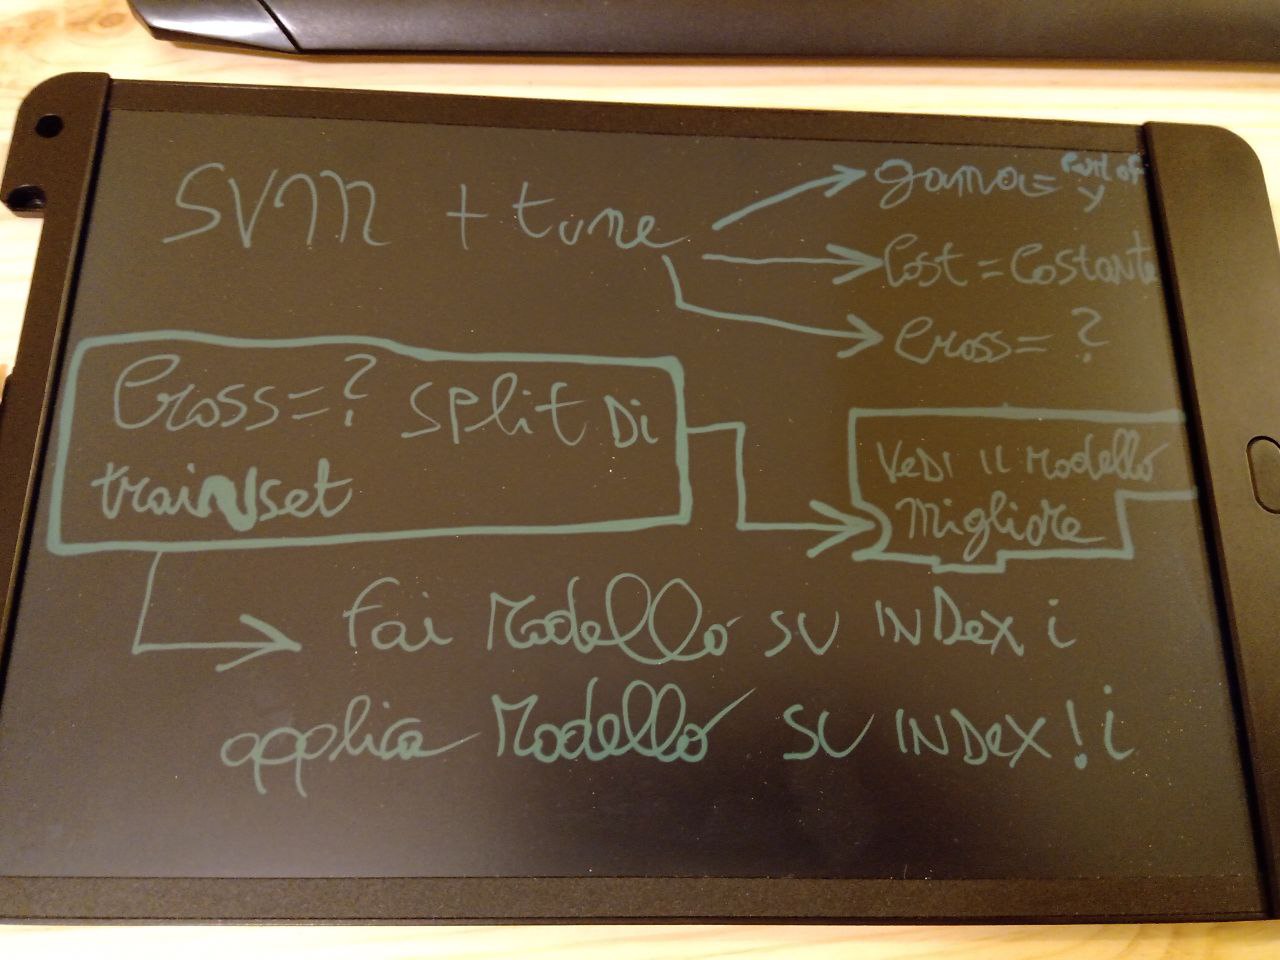 SVM + tune
gama =
Cost = Costante
Cross = ?
Cross = ? split Di
trainset
Vedi il modello
migliore
Fai Modello su INDex i
applica Modello su INDex ! i